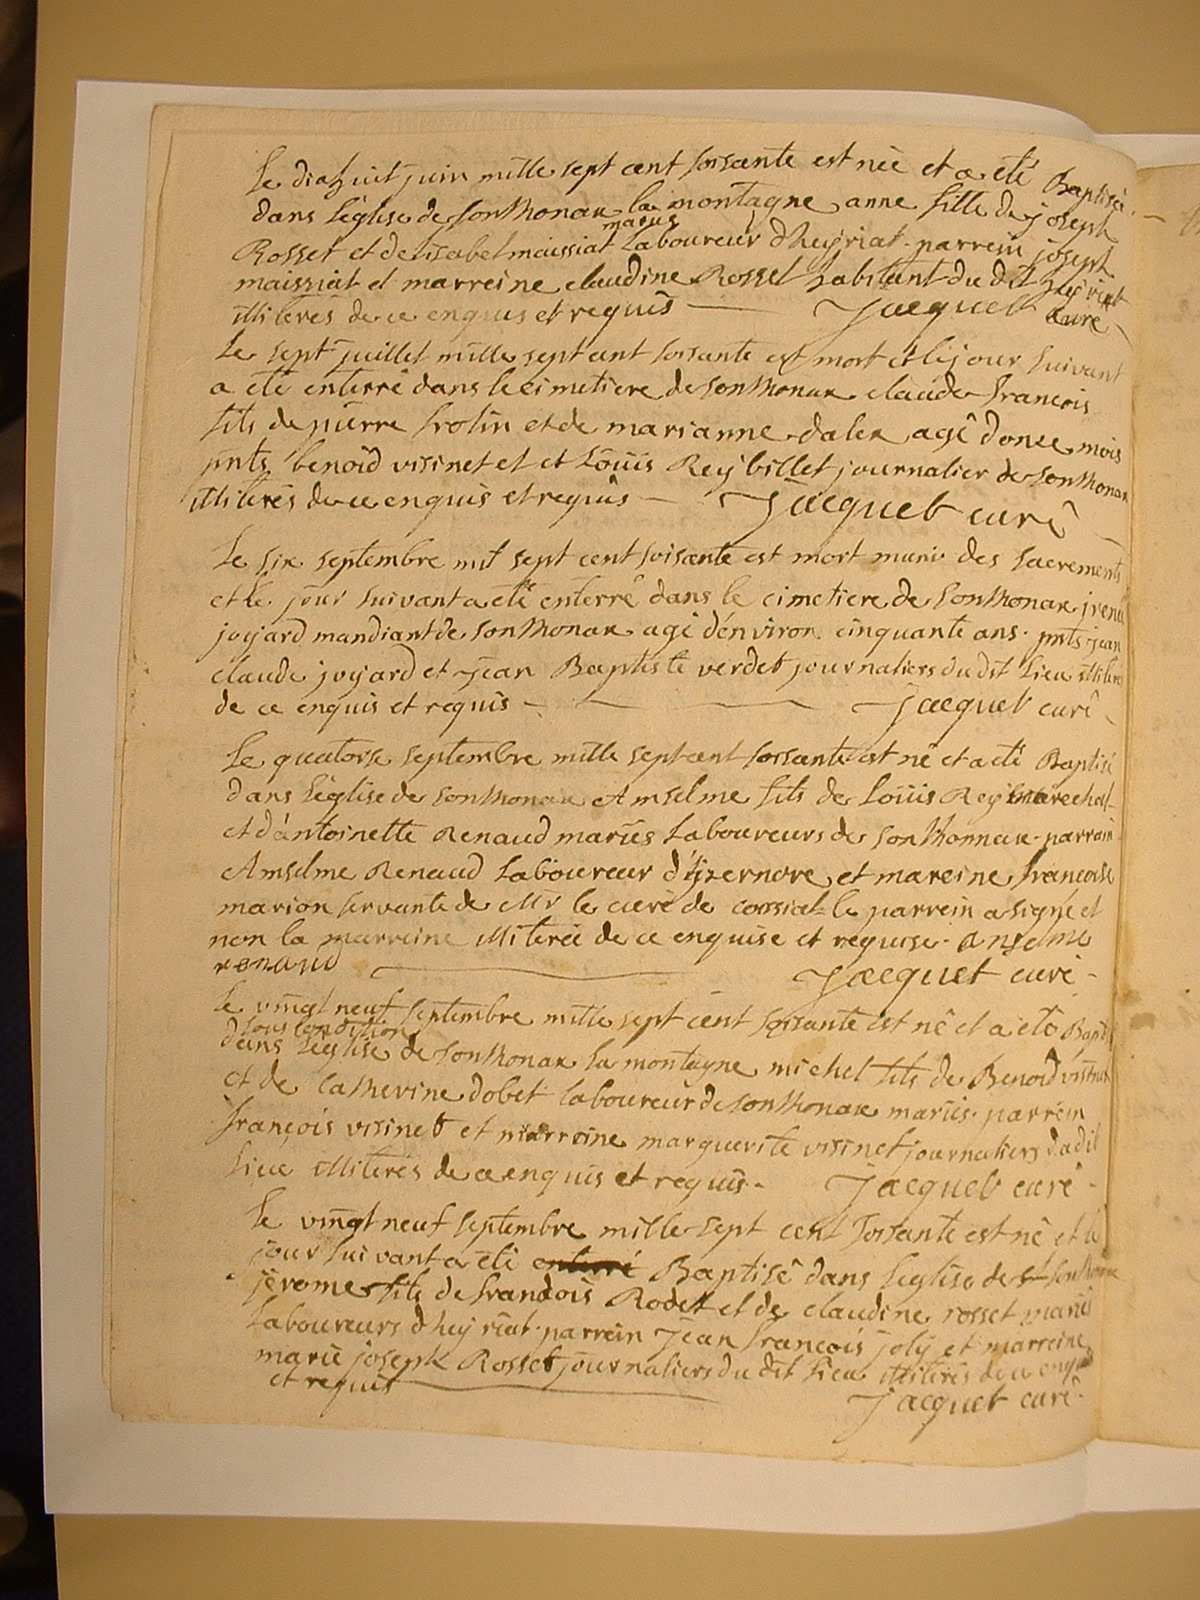 Le dixhuit juin mille sept cent soisante est née et a eté Baptisée
dans Léglise de Sonthonax la montagne anne fille de joseph
mariés
Rosset et delisabel maissiat Laboureur d'heyriat. parrein joseph
maissiat et marreine claudine Rosset habitant du dit heyriat
illiterés de ce enquis et requis Jacquet curé
Le sept juillet mille sept cent soisante est mort et le jour suivant
a eté enterré dans le cimetiere de Sonthonax claude francois
fils de pierre frolin et de marianne dalex agé donze mois
pnts benoid visinet et Loüis Reybillet journalier de Sonthonax
illiterés de ce enquis et requis Jacquet curé
Le six septembre mil sept cent soisante est mort muni des sacrements
et le jour suivant a eté enterré dans le cimetiere de Sonthonax jrené
joyard mandiant de Sonthonax agé d'environ cinquante ans. pnts jean
claude joyard et jean Baptiste verdet journaliers du dit Lieu illiterés
de ce enquis et requis Jacquet curé
Le quatorse septembre mille sept cent soisante est né et a eté Baptisé
dans Léglise de Sonthonax Amselme fils de Loüis Rey marechal
et d'antoinette Renaud mariés Laboureurs de Sonthonnax. parrain
Amselme Renaud Laboureur d'yzernore et mareine francoise
marion servante de Mr le curé de corssiat le parrein a signé et
non la marreine illiterée de ce enquise et requise. anselme
renaud Jacquet curé
Le vingt neuf septembre mille sept cent soisante est né et a eté Baptisé
sous condition
dans Léglise de Sonthonax La montagne michel fils de Benoid visinet
et de Catherine dobet Laboureur de Sonthonax mariés. parrein
françois visinet et marreine marguerite visinet journaliers dudit
Lieu illiterés de ce enquis et requis. Jacquet curé
Le vingt neuf septembre mille sept cent soisante est né et le
jour suivant a eté enterré Baptisé dans Leglise de Sonthonax
jérome fils de francois Rodet et de claudine rosset mariés
Laboureurs d'heyriat. parrein Jean francois joly et marreine
marie joseph Rosset journaliers du dit Lieu illiterés de ce enquis
et requis Jacquet curé